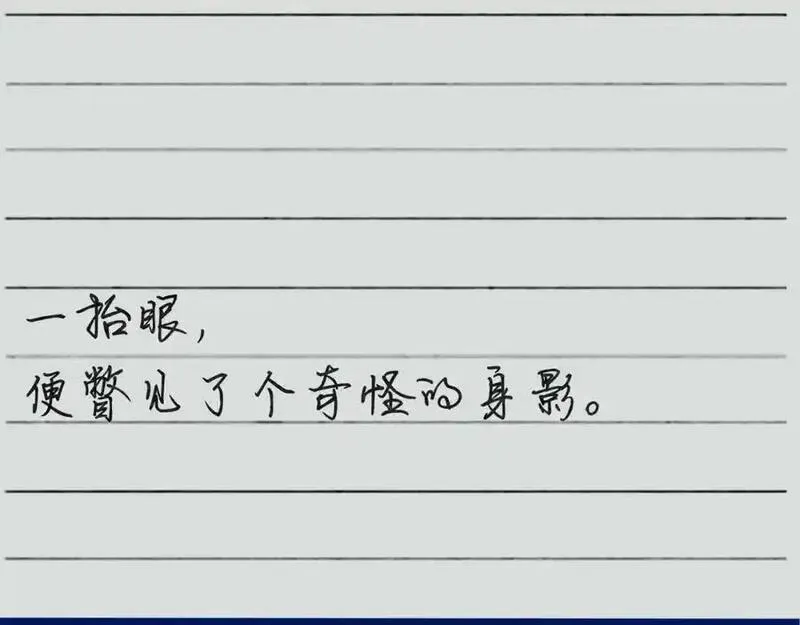 一抬眼，
便瞥见了个奇怪的身影。